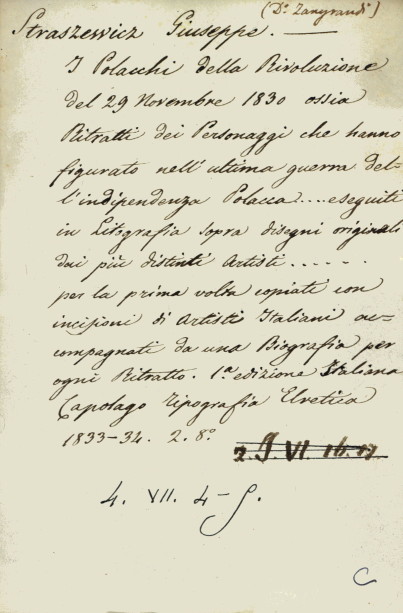 (Dr. Zangrandi)
Straszewicz Giuseppe. —
I Polacchi della Rivoluzione
del 29 Novembre 1830 ossia
Ritratti dei Personaggi che hanno
figurato nell'ultima guerra del-
l'indipendenza Polacca.... eseguiti
in Litografia sopra disegni originali
dai più distinti Artisti......
per la prima volta copiati con
incisioni di Artisti Italiani ac-
compagnati da una Biografia per
ogni Ritratto. 1.a edizione Italiana
Capolago Tipografia Elvetica
1833-34. 2. 8.°
VI. 16. 17
4. VII. 4-5.
C